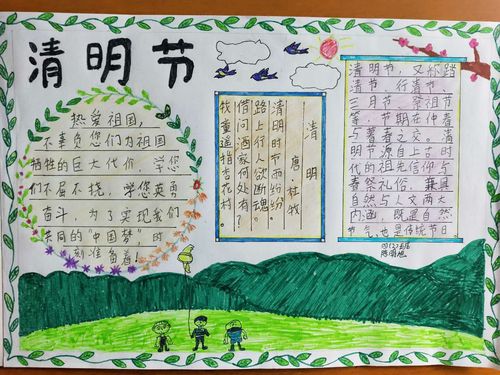 清明节
热爱祖国,
不辜负您们为祖国
牺牲的巨大代价 学您
们不屈不挠,学您英勇
奋斗,为了实现我们
共同的"中国梦"时
刻准备着!
清明
唐 杜牧
清明时节雨纷纷,
路上行人欲断魂。
借问酒家何处有?
牧童遥指杏花村。
清明节,又称踏
青节、行清节、
三月节、祭祖节
等,节期在仲春
与暮春之交。清
明节源自上古时
代的祖先信仰与
春祭礼俗,兼具
自然与人文两大
内涵,既是自然
节气,也是传统节日